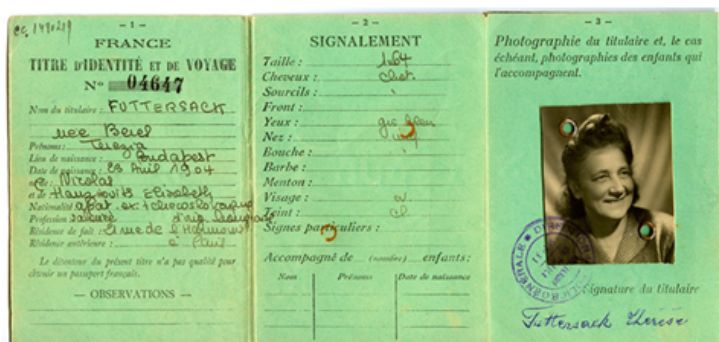 - 1 -
FRANCE
TITRE D'IDENTITÉ ET DE VOYAGE
Nº 04647
Nom du titulaire : FUTTERSACK
née
Prénoms :
Lieu de naissance : Budapest
Date de naissance : 23 Avril 1904
Nicolas
et de Elisabeth
Nationalité
Profession
Résidence de fait :
Résidence antérieure : à Paris
Le détenteur du présent titre n'a pas qualité pour
obtenir un passeport français.
— OBSERVATIONS —
- 2 -
SIGNALEMENT
Taille : 1.64
Cheveux : chat
Sourcils :
Front :
Yeux : gris bleu
Nez :
Bouche :
Barbe :
Menton :
Visage : ov
Teint : cl
Signes particuliers :
Accompagné de (nombre) enfants :
Nom Prénoms Date de naissance
- 3 -
Photographie du titulaire et, le cas
échéant, photographies des enfants qui
l'accompagnent.
Signature du titulaire
Futtersack Thérèse